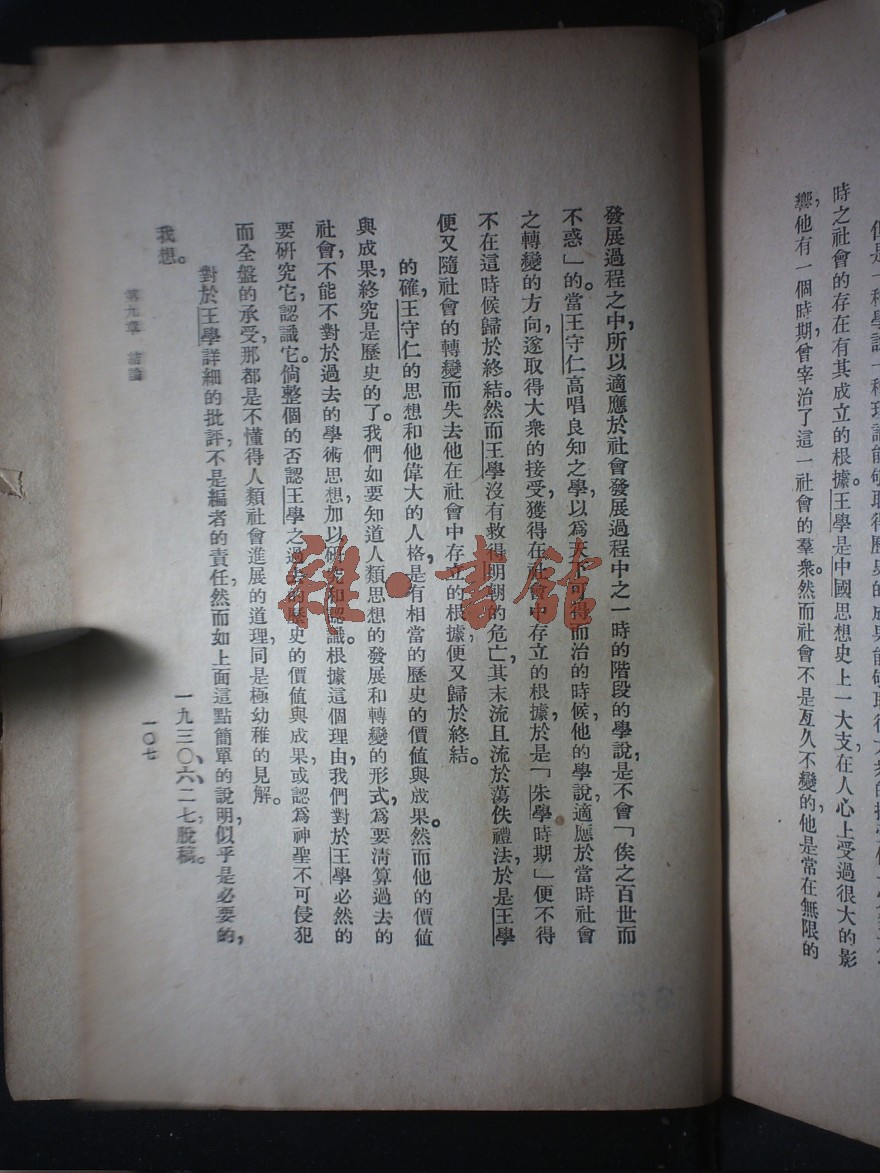 時之社會的存在有其成立的根據。王學是中國思想史上一大支在人心上受過很大的影
響，他有一個時期曾宰治了這一社會的羣衆。然而社會不是亙久不變的，他是常在無限的
發展過程之中，所以適應於社會發展過程中之一時的階段的學說，是不會「俟之百世而
不惑」的。當王守仁高唱良知之學，以爲天下可得而治的時候，他的學說，適應於當時社會
之轉變的方向，遂取得大衆的接受，獲得在社會中存立的根據，於是「朱學時期」便不得
不在這時候歸於終結。然而王學沒有救得明朝的危亡，其末流且流於蕩佚禮法，於是王學
便又隨社會的轉變而失去他在社會中存立的根據，便又歸於終結。
的確，王守仁的思想和他偉大的人格，是有相當的歷史的價値與成果。然而他的價値
與成果，終究是歷史的了。我們如要知道人類思想的發展和轉變的形式，爲要淸算過去的
社會，不能不對於過去的學術思想，加以硏究和認識。根據這個理由，我們對於王學必然的
要硏究它，認識它。倘整個的否認王學之過去的歷史的價値與成果，或認爲神聖不可侵犯
而全盤的承受，那都是不懂得人類社會進展的道理，同是極幼稚的見解。
對於王學詳細的批評，不是編者的責任，然而如上面這點簡單的說明，似乎是必要的，
我想。
一九三〇、六、二七，脫稿。
第九章 結論
一〇七
雜·書館